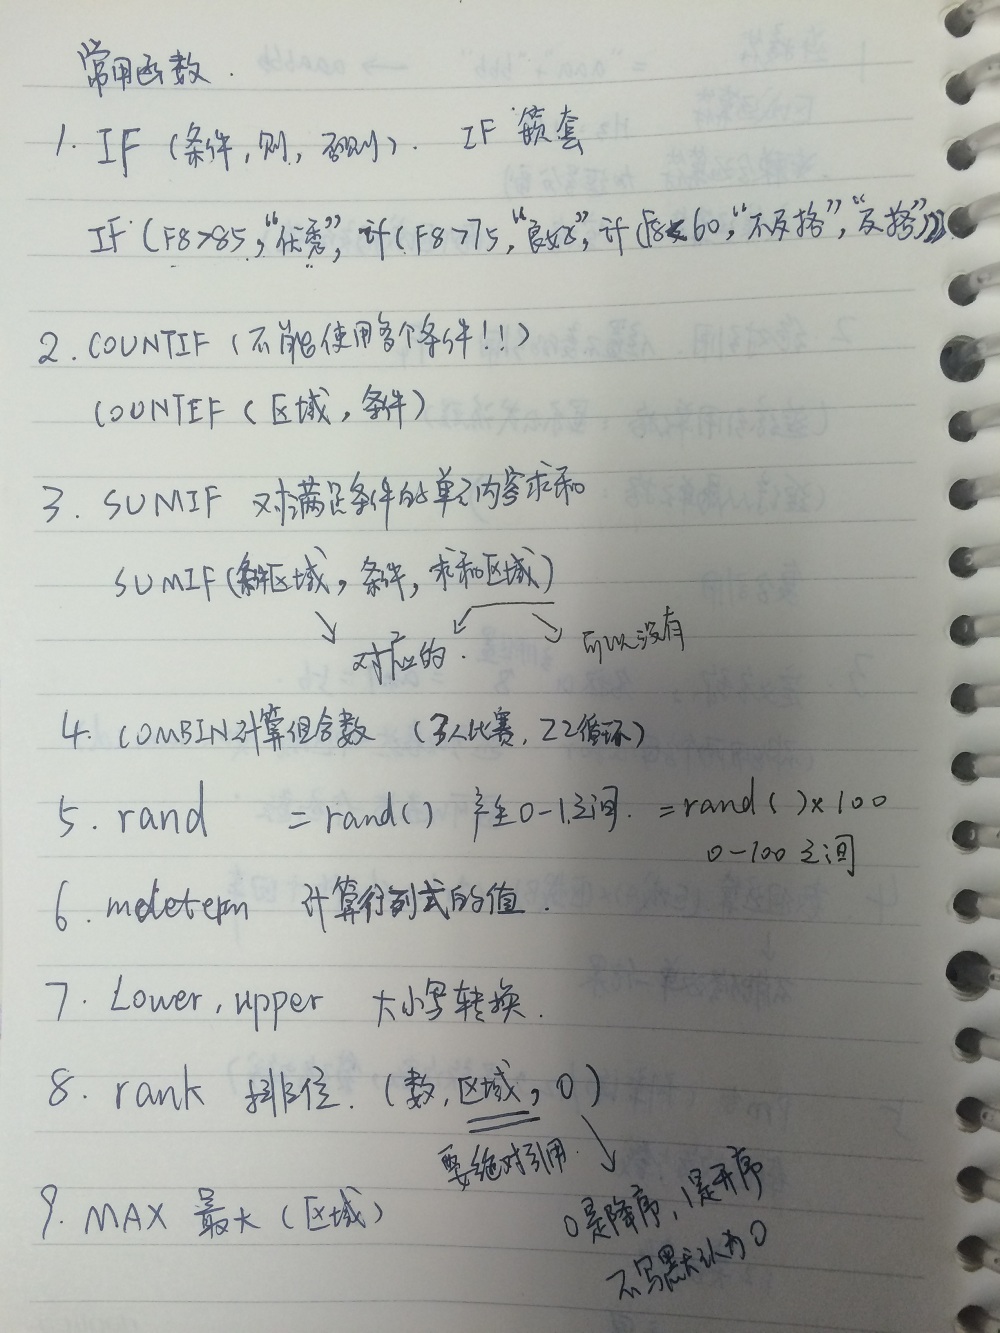 常用函数.
1. IF (条件,则,否则). IF 嵌套
IF(F8>85,“优秀”,计(F8>75,“良好”,计(F8<60,“不及格”,“及格”)))
2. COUNTIF (不能使用多个条件!!)
COUNTEF (区域,条件)
3. SUMIF 对满足条件的单元内容求和
SUMIF(条件区域,条件,求和区域)
对应的. 可以没有
4. COMBIN计算组合数 (多人比赛,22循环)
5. rand =rand() 产生0-1之间. =rand()×100
0-100之间
6. mdeterm 计算行列式的值.
7. Lower, upper 大小写转换.
8. rank 排位. (数,区域,0)
要绝对引用.
0是降序,1是升序
不写默认为0
9. MAX 最大 (区域)